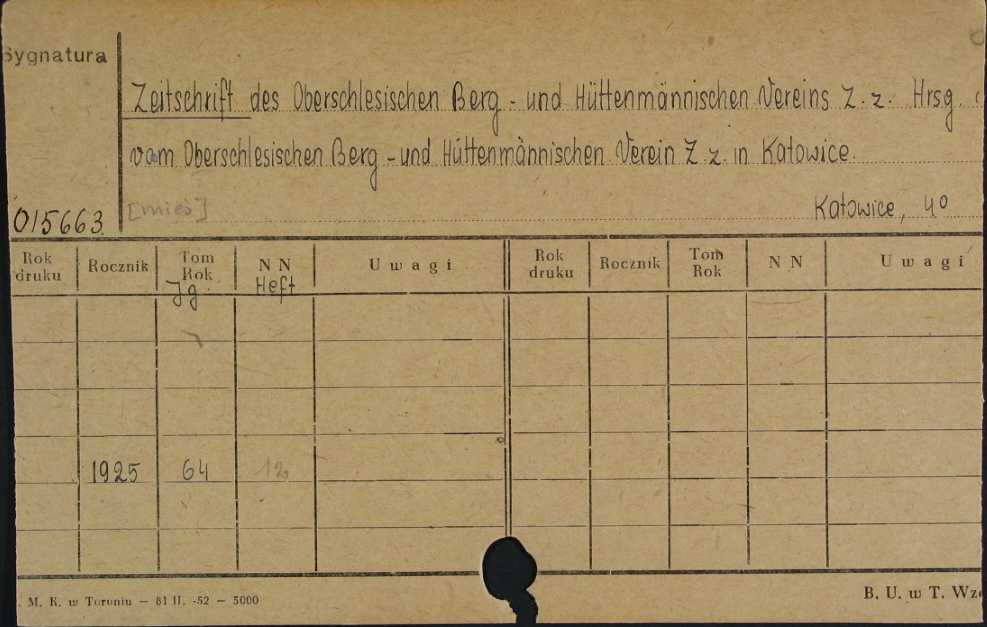 Sygnatura
Zeitschrift des Oberschlesischen Berg- und Hüttenmännischen Vereins Z. z. Hrsg.
vom Oberschlesischen Berg- und Hüttenmännischen Verein Z. z. in Katowice.
015663 [mies]
Katowice, 4º
Rok druku Rocznik Tom Rok NN Uwagi Rok druku Rocznik Tom Rok NN Uwagi
Jg. Heft
1925 64 12
. M. K. w Toruniu — 81 II. -52 — 5000 B. U. w T.